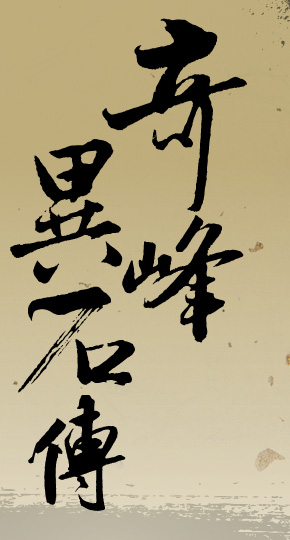 奇峰
異石傳